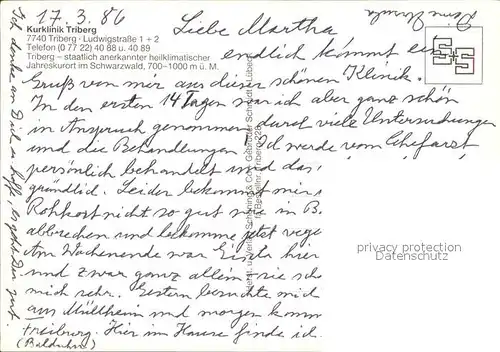 17.3.86
Kurklinik Triberg
7740 Triberg · Ludwigstraße 1 + 2
Telefon (0 77 22) 40 88 u. 40 89
Triberg – staatlich anerkannter heilklimatischer
Jahreskurort im Schwarzwald, 700–1000 m ü. M.
Liebe Martha
endlich kommt ein
Gruß von mir aus dieser schönen Klinik.
In den ersten 14 Tagen war ich aber ganz schön
in Anspruch genommen durch viele Untersuchungen
und die Behandlungen. Ich werde vom Chefarzt
persönlich behandelt und das,
gründlich. Leider bekommt mir
Rohkost nicht so gut in B.
abbrechen und bekomme jetzt vege
Am Wochenende war hier
und zwar ganz allein – sie sch
mich sehr. Gestern besuchte mich
aus Müllheim und morgen komm
Freiburg. Hier im Hause finde ich
Ich denke an Dich u. hoffe, es geht Dir gut.
Deine Ursula
Gesamtherst. u. Verlag Schöning & Co + Gebrüder Schmidt, Lübeck
Bestellnr. Triberg 28
privat specialized
delcampe